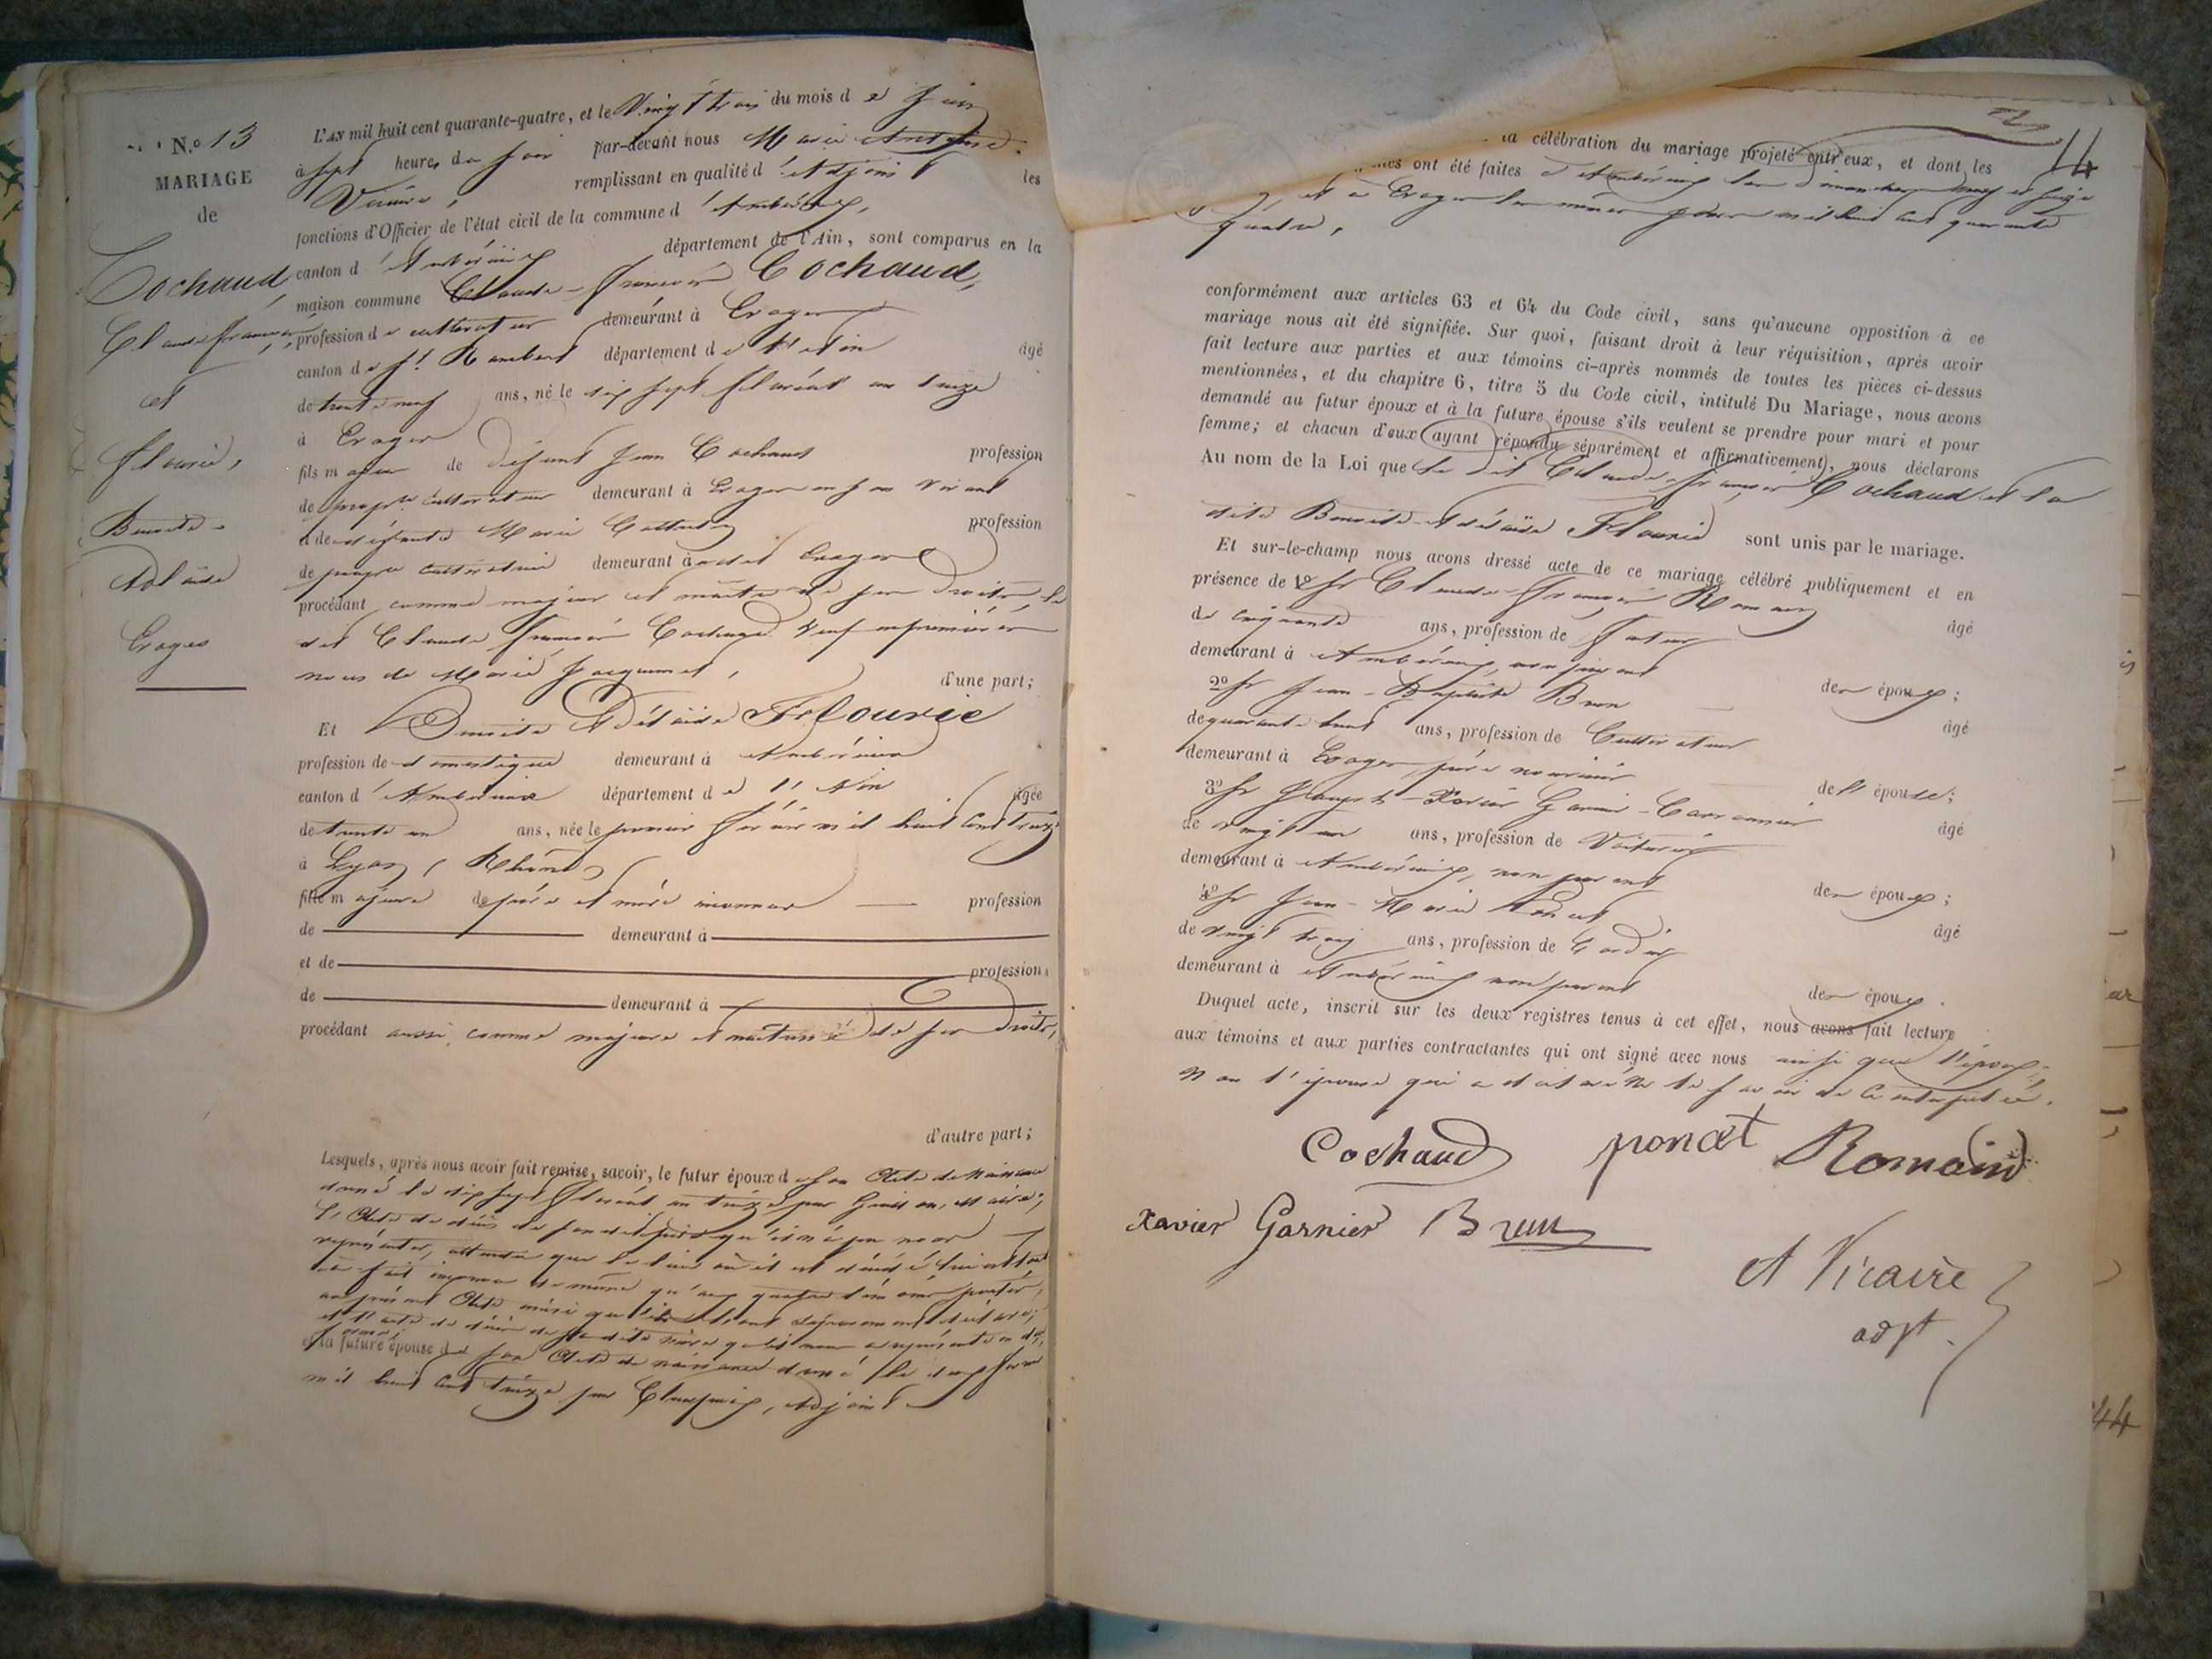 N.o 13
MARIAGE
de
Cochaud
Claude françois,
et
flourie,
Benoite-
Adélaïde
L'AN mil huit cent quarante-quatre, et le Vingt trois du mois de Juin
à sept heures du soir par-devant nous Marie Antoine
Vicaire, remplissant en qualité d'Adjoint les
fonctions d'Officier de l'état civil de la commune d'Ambérieux,
canton d'Ambérieux département de l'Ain, sont comparus en la
maison commune Claude-François Cochaud,
profession de cultivateur demeurant à
canton de St. Rambert département de l'Ain âgé
de trente neuf ans, né le dix sept floréal an treize
à
fils majeur de défunt Jean Cochaud profession
de propre. cultivateur demeurant à en son vivant
et de défunte Marie profession
de propre cultivatrice demeurant à
procédant comme majeur et maître de ses droits, le
dit Claude François Cochaud veuf en premières
noces de Marie Jacquemet, d'une part;
Et Benoite Adélaïde Flourie
profession de domestique demeurant à Ambérieux
canton d'Ambérieux département de l'Ain âgée
de trente un ans, née le premier février mil huit cent treize
à Lyon, Rhône
fille majeure de père et mère inconnus profession
de demeurant à
et de profession
de demeurant à
procédant aussi comme majeure et maitresse de ses droits,
d'autre part;
Lesquels, après nous avoir fait remise, savoir, le futur époux de son Acte de Naissance
donné le dix sept floréal an treize par maire;
l'Acte de décès de son dit père qu'il n'a pu nous
représenter, attendu que le lieu où il est décédé lui est tout
à fait inconnu de même qu'aux quatre témoins
au présent Acte, ainsi qu'ils l'ont déclaré;
et l'acte de décès de sa dite mère qu'il nous a représenté
et la future épouse de son Acte de naissance donné le
mil huit cent treize par Adjoint
14
la célébration du mariage projeté entr'eux, et dont les
ont été faites à Ambérieux les dimanches neuf et seize
et à les mêmes jours mil huit cent quarante
quatre,
conformément aux articles 63 et 64 du Code civil, sans qu'aucune opposition à ce
mariage nous ait été signifiée. Sur quoi, faisant droit à leur réquisition, après avoir
fait lecture aux parties et aux témoins ci-après nommés de toutes les pièces ci-dessus
mentionnées, et du chapitre 6, titre 5 du Code civil, intitulé Du Mariage, nous avons
demandé au futur époux et à la future épouse s'ils veulent se prendre pour mari et pour
femme; et chacun d'eux (ayant répondu séparément et affirmativement), nous déclarons
Au nom de la Loi que le dit Claude-françois Cochaud et la
dite Benoite-Adélaïde Flourie sont unis par le mariage.
Et sur-le-champ nous avons dressé acte de ce mariage célébré publiquement et en
présence de 1o Sr Claude-François Romain âgé
de cinquante ans, profession de
demeurant à Ambérieux, non parent des époux;
2o Sr Jean-Baptiste Brun âgé
de quarante huit ans, profession de Cultivateur
demeurant à père nourricier de l'épouse;
3o Sr Joseph-Xavier Garnier- âgé
de vingt un ans, profession de Voiturier
demeurant à Ambérieux, non parent des époux;
4o Sr Jean-Marie Poncet âgé
de vingt trois ans, profession de Cordier
demeurant à Ambérieux non parent des époux.
Duquel acte, inscrit sur les deux registres tenus à cet effet, nous avons fait lecture
aux témoins et aux parties contractantes qui ont signé avec nous ainsi que l'époux,
non l'épouse qui a déclaré ne le savoir de ce interpellée.
Cochaud poncet Romain
Xavier Garnier Brun
A Vicaire
adjt.
44